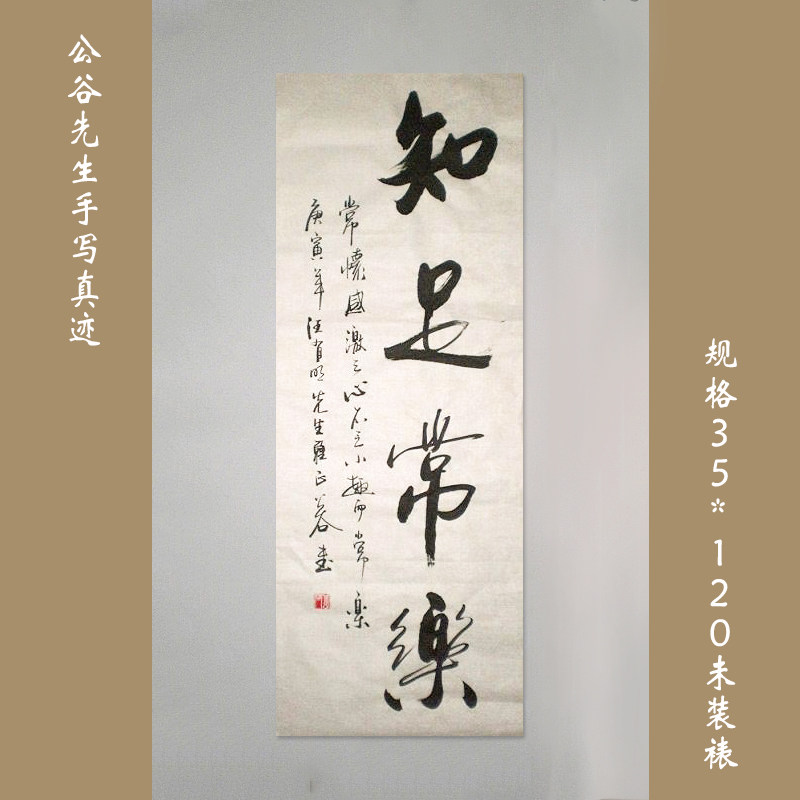 公谷先生手写真迹
知足常樂
常懷感激之心小趣而常樂
庚寅年汪明先生雅正公谷書
规格35*120未装裱